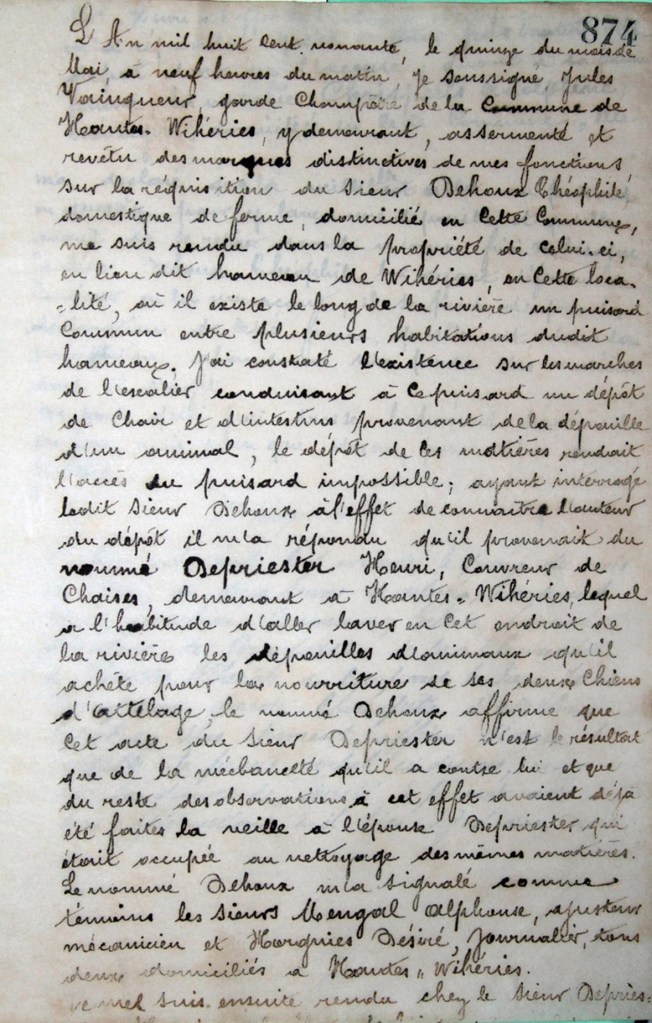 874
L'An mil huit cent nonante, le quinze du mois de
Mai, à neuf heures du matin, Je soussigné, Jules
Vainqueur, garde Champêtre de la Commune de
Hantes-Wihéries, y demeurant, assermenté et
revêtu des marques distinctives de mes fonctions,
sur la réquisition du sieur Dehoux Théophile,
domestique de ferme, domicilié en cette Commune,
me suis rendu dans la propriété de celui-ci,
en lieu dit hameau de Wihéries, en Cette loca-
-lité, où il existe le long de la rivière un puisard
Commun entre plusieurs habitations dudit
hameau. J'ai constaté l'existence sur les marches
de l'escalier conduisant à ce puisard un dépôt
de Chair et d'intestins provenant de la dépouille
d'un animal, le dépôt de ces matières rendrait
l'accès au puisard impossible; ayant interrogé
ledit sieur Dehoux à l'effet de connaître l'auteur
du dépôt il m'a répondu qu'il provenait du
nommé Depriester Henri, Couvreur de
Chaises, demeurant à Hantes-Wihéries, lequel
a l'habitude d'aller laver en cet endroit de
la rivière les dépouilles d'animaux qu'il
achète pour la nourriture de ses deux Chiens
d'attelage, le nommé Dehoux affirme que
Cet acte du sieur Depriester n'est le résultat
que de la méchanceté qu'il a contre lui et que
du reste des observations à cet effet avaient déjà
été faites la veille à l'épouse Depriester qui
était occupée au nettoyage des mêmes matières.
Le nommé Dehoux m'a signalé comme
témoins les sieurs Mengal Alphonse, ajusteur
mécanicien et Horgnies Désiré, Journalier, tous
deux domiciliés à Hantes-Wihéries.
suis ensuite rendu chez le sieur Depries-